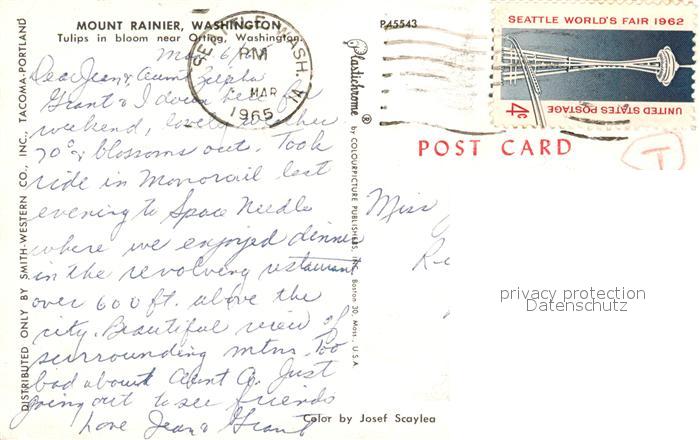 MOUNT RAINIER, WASHINGTON
Tulips in bloom near Orting, Washington.
P45543
SEATTLE WORLD'S FAIR 1962
4¢
UNITED STATES POSTAGE
SEATTLE, WASH.
PM
MAR
1965
1A
POST CARD
Dear Jean & Aunt
Grant & I down here for
weekend, lovely weather
70° & blossoms out. Took
ride in Monorail last
evening to Space Needle
where we enjoyed dinner
in the revolving restaurant
over 600 ft. above the
city. Beautiful view of
surrounding mtns. Too
bad about Aunt O. Just
going out to see friends
Love Jean & Grant
Miss
Re
privacy protection
Datenschutz
DISTRIBUTED ONLY BY SMITH-WESTERN CO., INC., TACOMA-PORTLAND
Plastichrome ® by COLOURPICTURE PUBLISHERS, INC. Boston 30, Mass., U.S.A
Color by Josef Scaylea